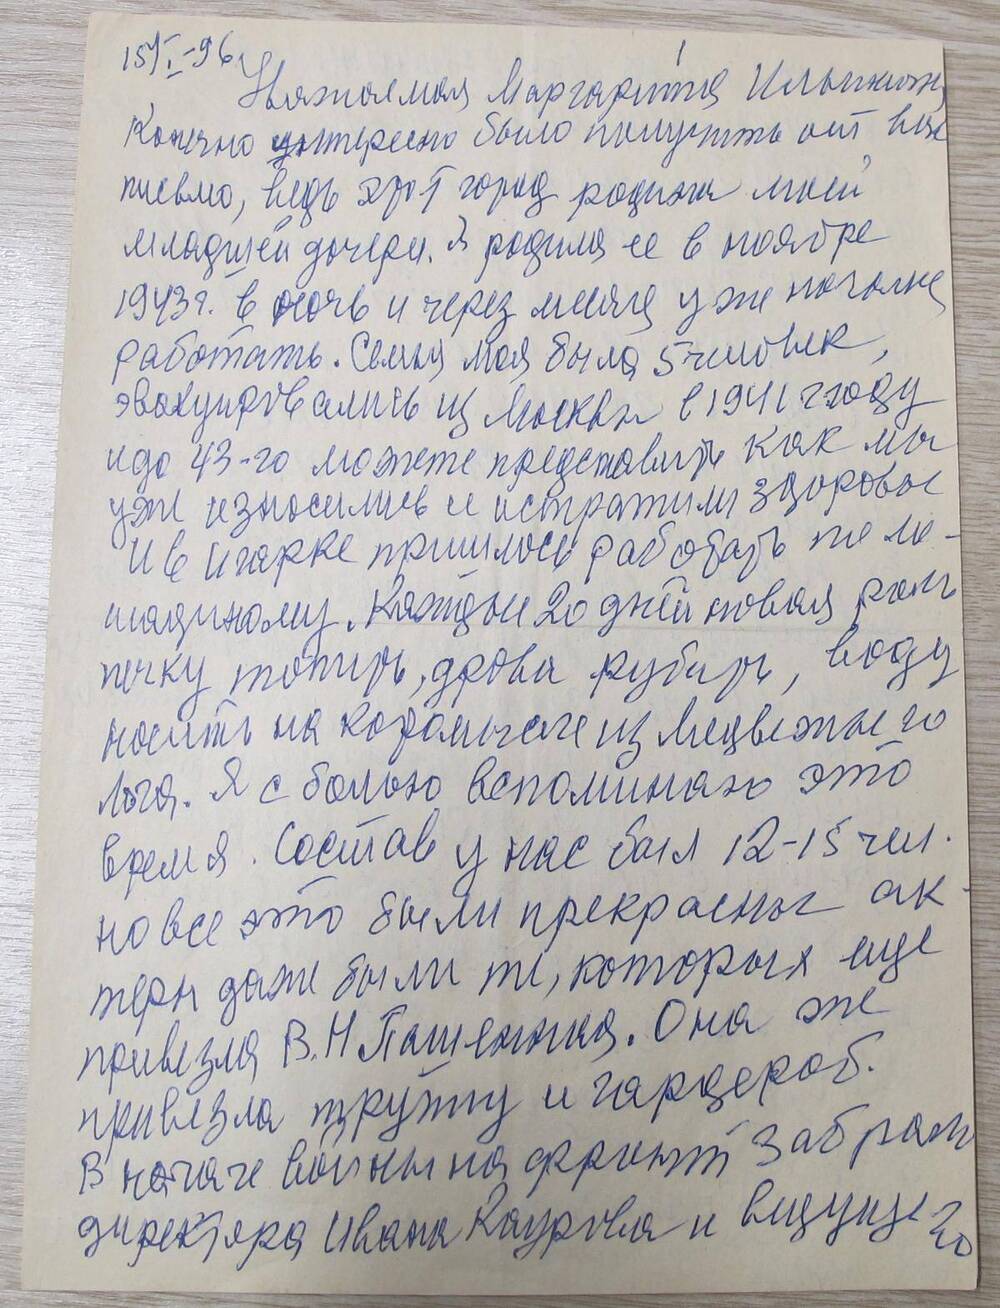 15/I-96
Уважаемая Маргарита Ильинична
Конечно интересно было получить от вас
письмо, ведь этот город родина моей
младшей дочери. Я родила ее в ноябре
1943г. в ночь и через месяц уже начала
работать. Семья моя была 5 человек,
эвакуировались из Москвы в 1941 году
и до 43-го можете представить как мы
уже износились и истратили здоровье
И в Игарке пришлось работать по ло-
шадиному. Каждые 20 дней новая роль
печку топить, дрова рубить, воду
носить на коромысле из Медвежьего
лога. Я с болью вспоминаю это
время. Состав у нас был 12-15 чел.
но все это были прекрасные ак-
теры даже были те, которых еще
привезла В.Н Пашенная. Она же
привезла труппу и гардероб.
В начале войны на фронт забрали
директора Ивана Каурова и ведущего